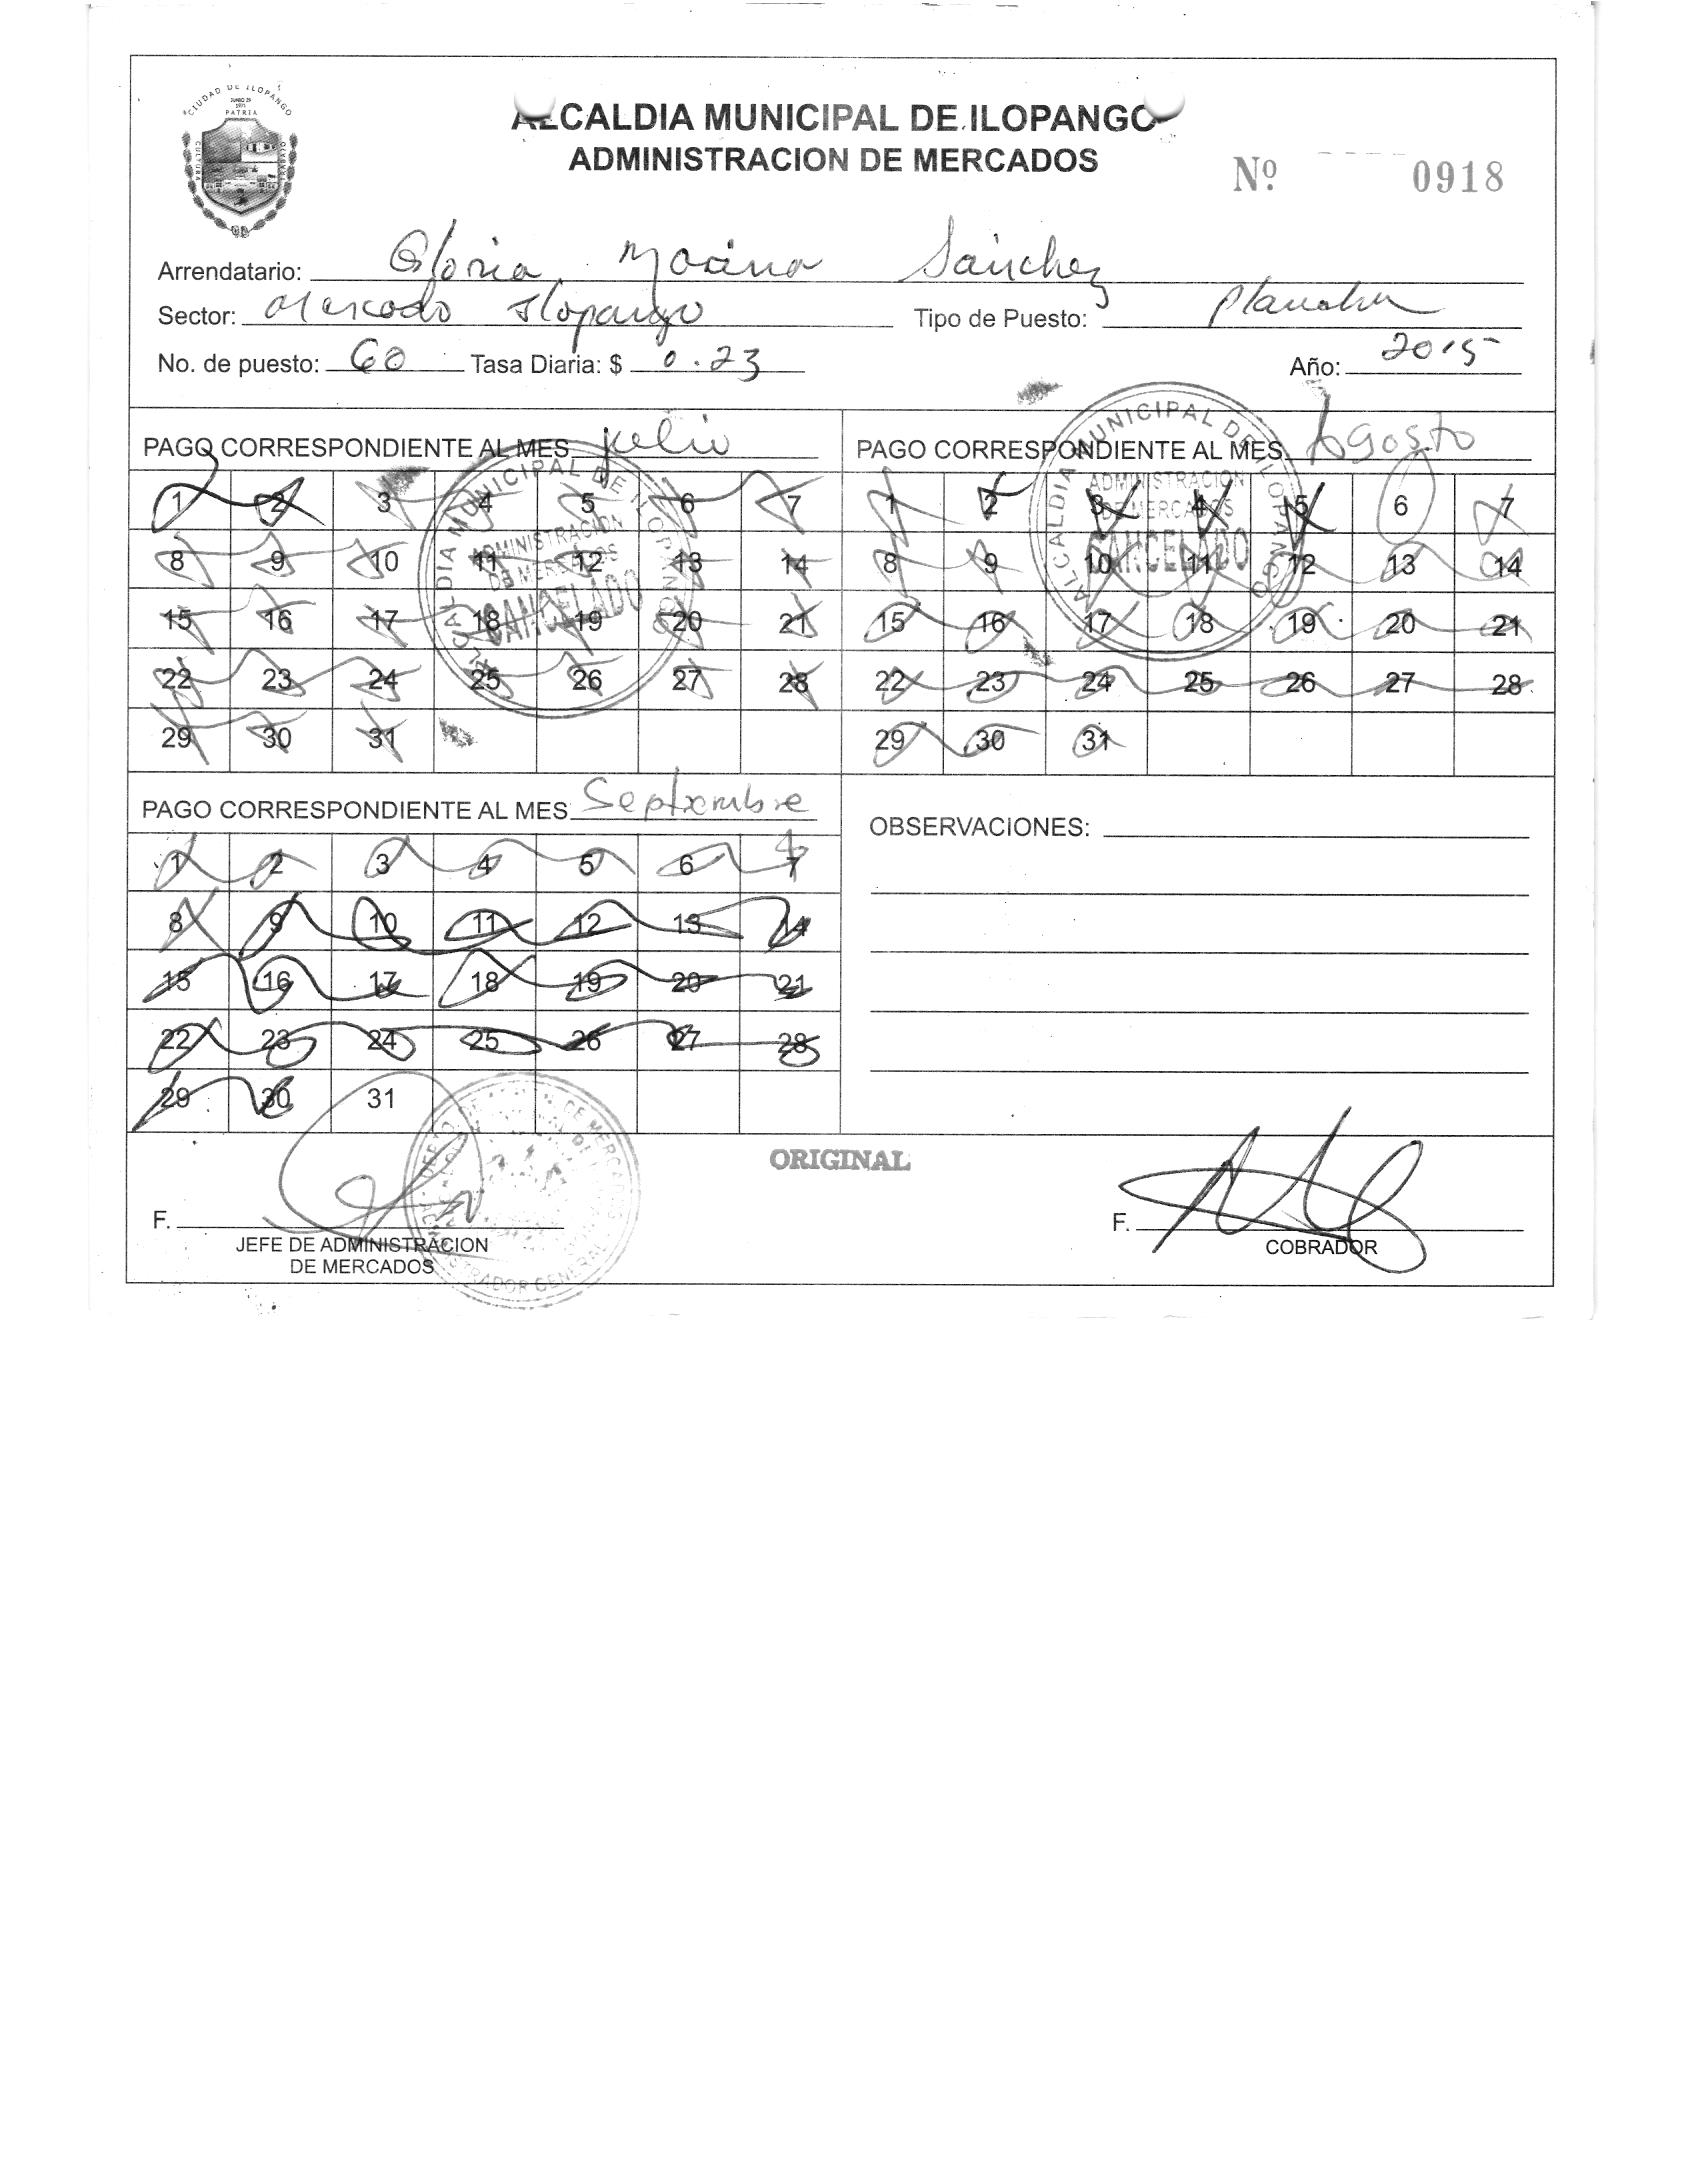 CIUDAD DE ILOPANGO
JUNIO 29
1971
PATRIA
CULTURA
ALCALDIA MUNICIPAL DE ILOPANGO
ADMINISTRACION DE MERCADOS
Nº 0918
Arrendatario: Gloria Marina Sánchez
Sector: Mercado Ilopango Tipo de Puesto: Plancha
No. de puesto: 60 Tasa Diaria: $ 0.23 Año: 2015
PAGO CORRESPONDIENTE AL MES Julio
1 2 3 4 5 6 7
8 9 10 11 12 13 14
15 16 17 18 19 20 21
22 23 24 25 26 27 28
29 30 31
ALCALDIA MUNICIPAL DE ILOPANGO
ADMINISTRACION
DE MERCADOS
CANCELADO
PAGO CORRESPONDIENTE AL MES Agosto
1 2 3 4 5 6 7
8 9 10 11 12 13 14
15 16 17 18 19 20 21
22 23 24 25 26 27 28
29 30 31
ALCALDIA MUNICIPAL DE ILOPANGO
ADMINISTRACION
DE MERCADOS
CANCELADO
PAGO CORRESPONDIENTE AL MES Septiembre
1 2 3 4 5 6 7
8 9 10 11 12 13 14
15 16 17 18 19 20 21
22 23 24 25 26 27 28
29 30 31
OBSERVACIONES:
ORIGINAL
F.
JEFE DE ADMINISTRACION
DE MERCADOS
F.
COBRADOR
DE MERCADOS
GENERAL